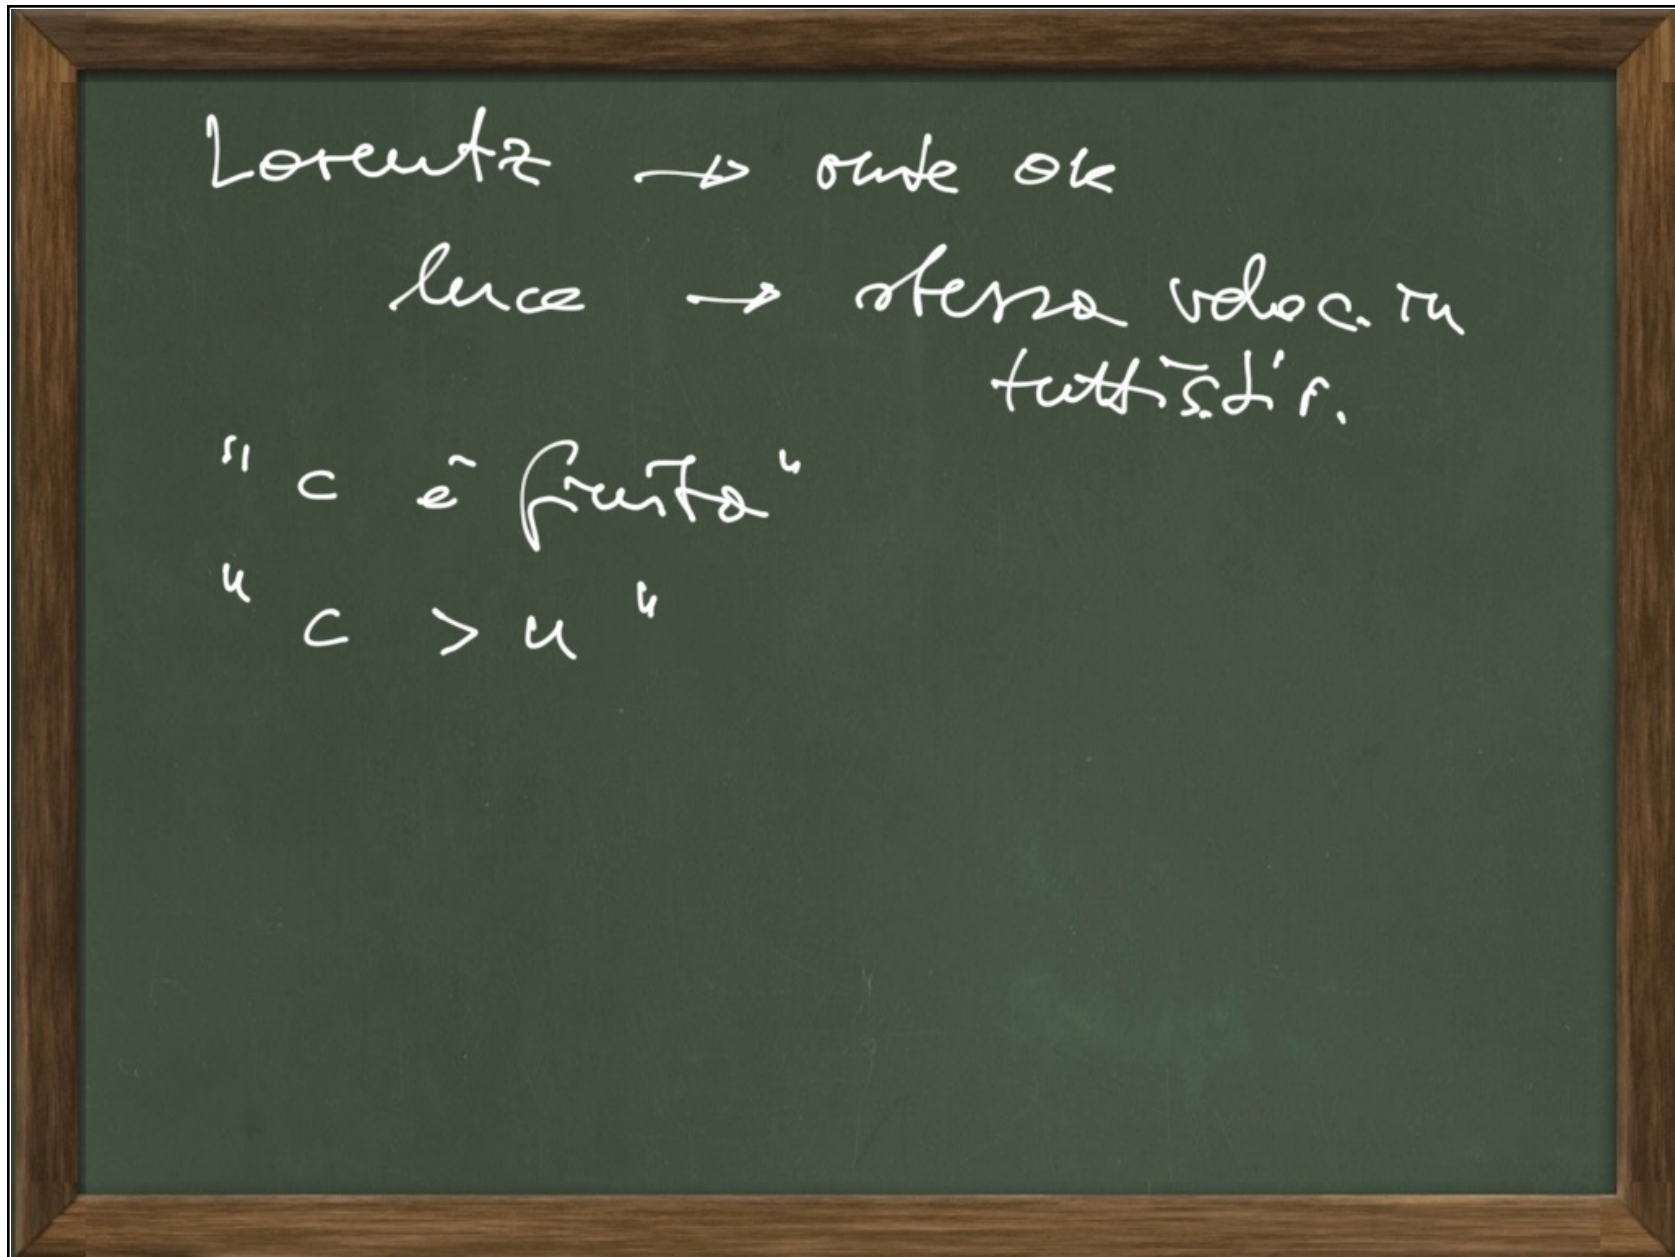 Lorentz → onde ok
luce → stessa veloc. in
tutti i s. di r.
"c è finita"
"c > u"